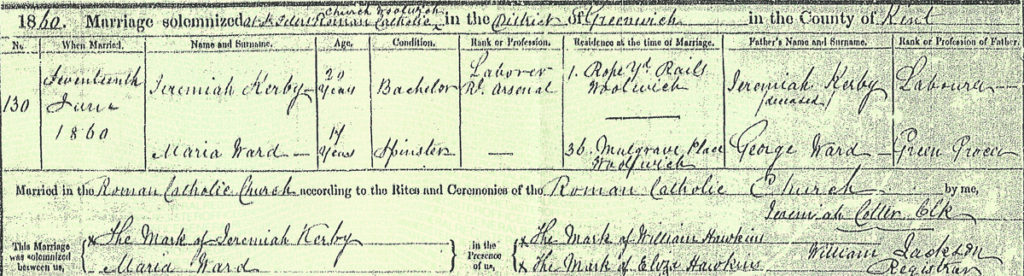 1860. Marriage solemnized at St Peters Roman Catholic Church Woolwich in the District of Greenwich in the County of Kent
No. When Married. Name and Surname. Age. Condition. Rank or Profession. Residence at the time of Marriage. Father's Name and Surname. Rank or Profession of Father.
130 Seventeenth June 1860 Jeremiah Kerby 20 Years Bachelor Laborer Rl. Arsenal 1. Rope Yd. Rails Woolwich Jeremiah Kerby (deceased) Labourer
Maria Ward 17 Years Spinster — 36. Mulgrave Place Woolwich George Ward Green Grocer
Married in the Roman Catholic Church according to the Rites and Ceremonies of the Roman Catholic Church by me,
Jeremiah Clk
This Marriage was solemnized between us,
x The Mark of Jeremiah Kerby
Maria Ward
in the Presence of us,
x The Mark of William Hawkins
x The Mark of Eliza Hawkins
William Jackson
Registrar